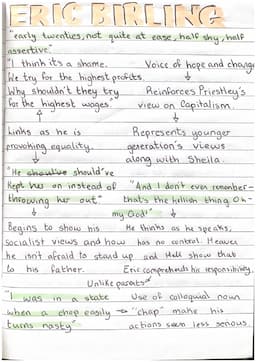 ERIC BIRLING
"early twenties, not quite at ease, half shy, half
assertive"
"I think it's a shame.
We try for the highest profits.
Why shouldn't they try
for the highest wages."
Voice of hope and change
Reinforces Priestley's
view on Capitalism.
Links as he is
provoking equality.
Represents younger
generation's views
along with Sheila.
"He shoulve should've
kept her on instead of
throwing her out"
"And I don't even remember-
that's the hellish thing Oh-
my God!"
Begins to show his
socialist views and how
he isn't afraid to stand up
to his father.
He thinks as he speaks,
has no control. Heaven
and Hell show that
Eric comprehends his responsibility.
Unlike parents
"I was in a state
when a chap easily
turns nasty"
Use of colloquial noun
"chap" make his
actions seem less serious.